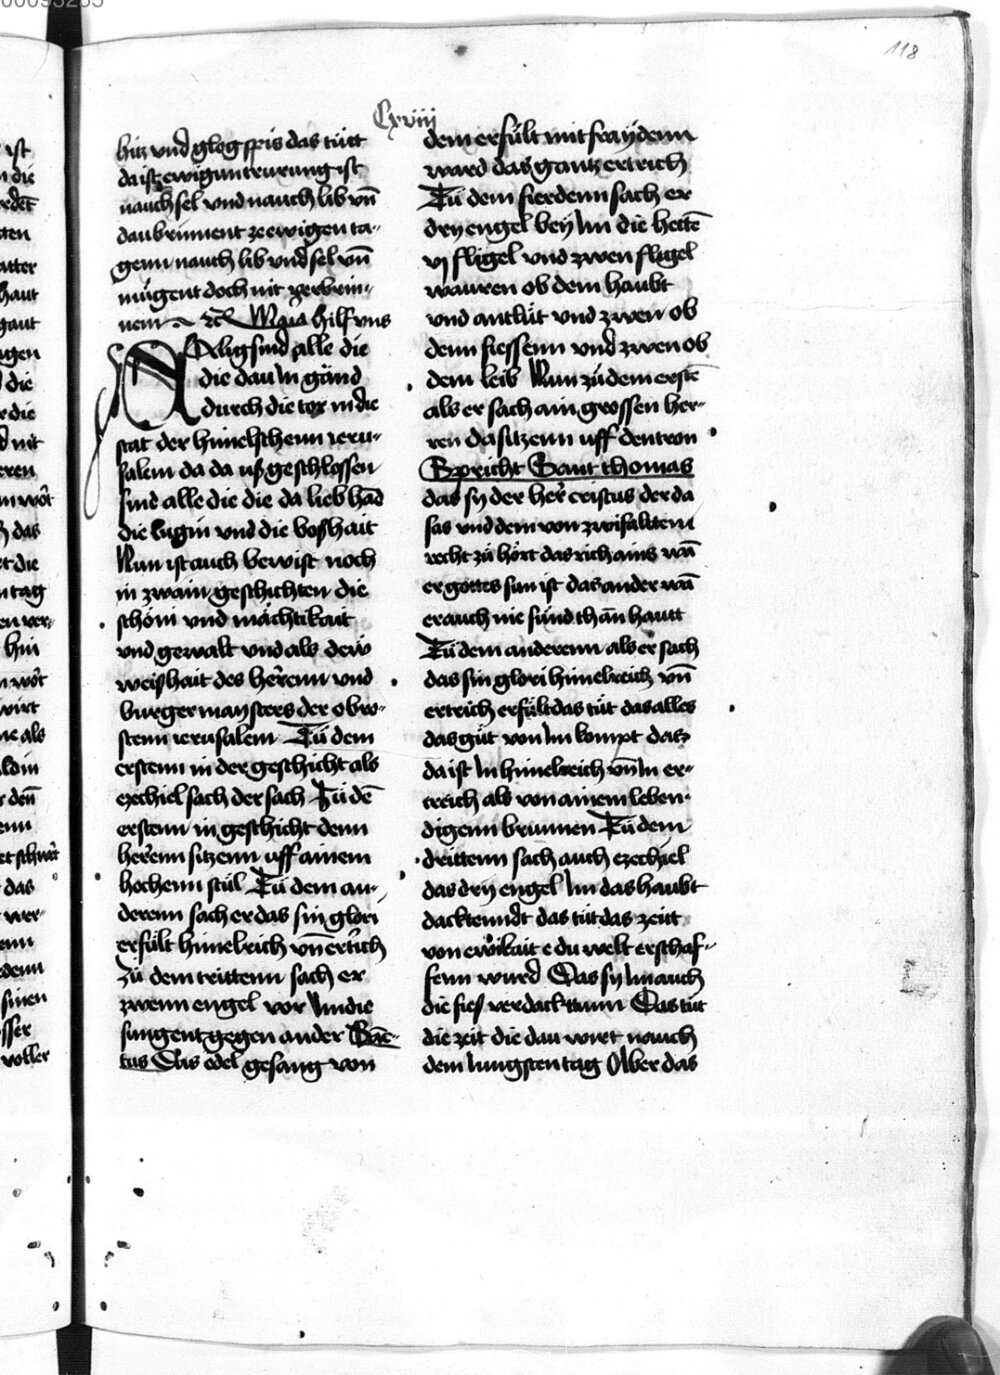 118
Cxviii
hitz vnd glog spis das tütt
da ist ewigun trurung ist
nauch sel vnd nauch lib vn̄
dau brinnent ze ewigen ta-
genn nauch lib vnd sel vn̄
mügent doch nit verbrin-
nenn Maria hilf vns
Selig sind alle die
die dau In gänd
durch die tor in die
stat der himelschenn ieru-
salem da da uß geschlossen
sind alle die die da lieb händ
die lugin vnd die boßhait
Nun ist auch bewist noch
in zwain geschichten die
schöni vnd mächtikait
vnd gewalt vnd als dew
weishait des herrenn vnd
burgermansters der obro-
stenn ierusalem Zü dem
erstenn in der geschicht als
ezechiel sach der sach Zü dē
erstenn in geschicht denn
herrenn sitzenn uff ainem
hochenn stül Zü dem an-
derenn sach er das sin glori
erfült himelrich vn̄ ertrich
Zü dem trittenn sach er
zwenn engel vor Im die
sungent gegen ander San-
tus Das edel gesang von
dem erfült mit fraydenn
ward das gantz ertrich
Zü dem fierdenn sach er
dry engel bey Im die hettē
vj fligel vnd zwen fligel
wauren ob dem haubt
vnd antlüt vnd zwen ob
denn fiessenn vnd zwen ob
dem leib Nun zü dem erstē
als er sach ain grossen her-
ren da sitzenn uff den tron
Spricht Sant thomas
das sy der her cristus der da
sas vnd dem von zwifaltem
recht zü hört das rich ains wā
er gottes sun ist das ander wā
er auch nie sünd thān hautt
Zü dem anderenn als er sach
das sin glori himelreich vn̄
ertrich erfült das tüt das alles
das güt von Im kompt das
da ist In himelreich vn̄ In er-
treich als von ainem leben-
digenn brunnen Zü dem
drittenn sach auch ezechiel
das dry engel Im das haubt
dacktenndt das tüt das zeitt
von ewikait e du welt erschaf-
fenn wurd Das sy Im auch
die fies verdacktunn Das tüt
die zeit die dau wirt nauch
dem Iungsten tag Aber das